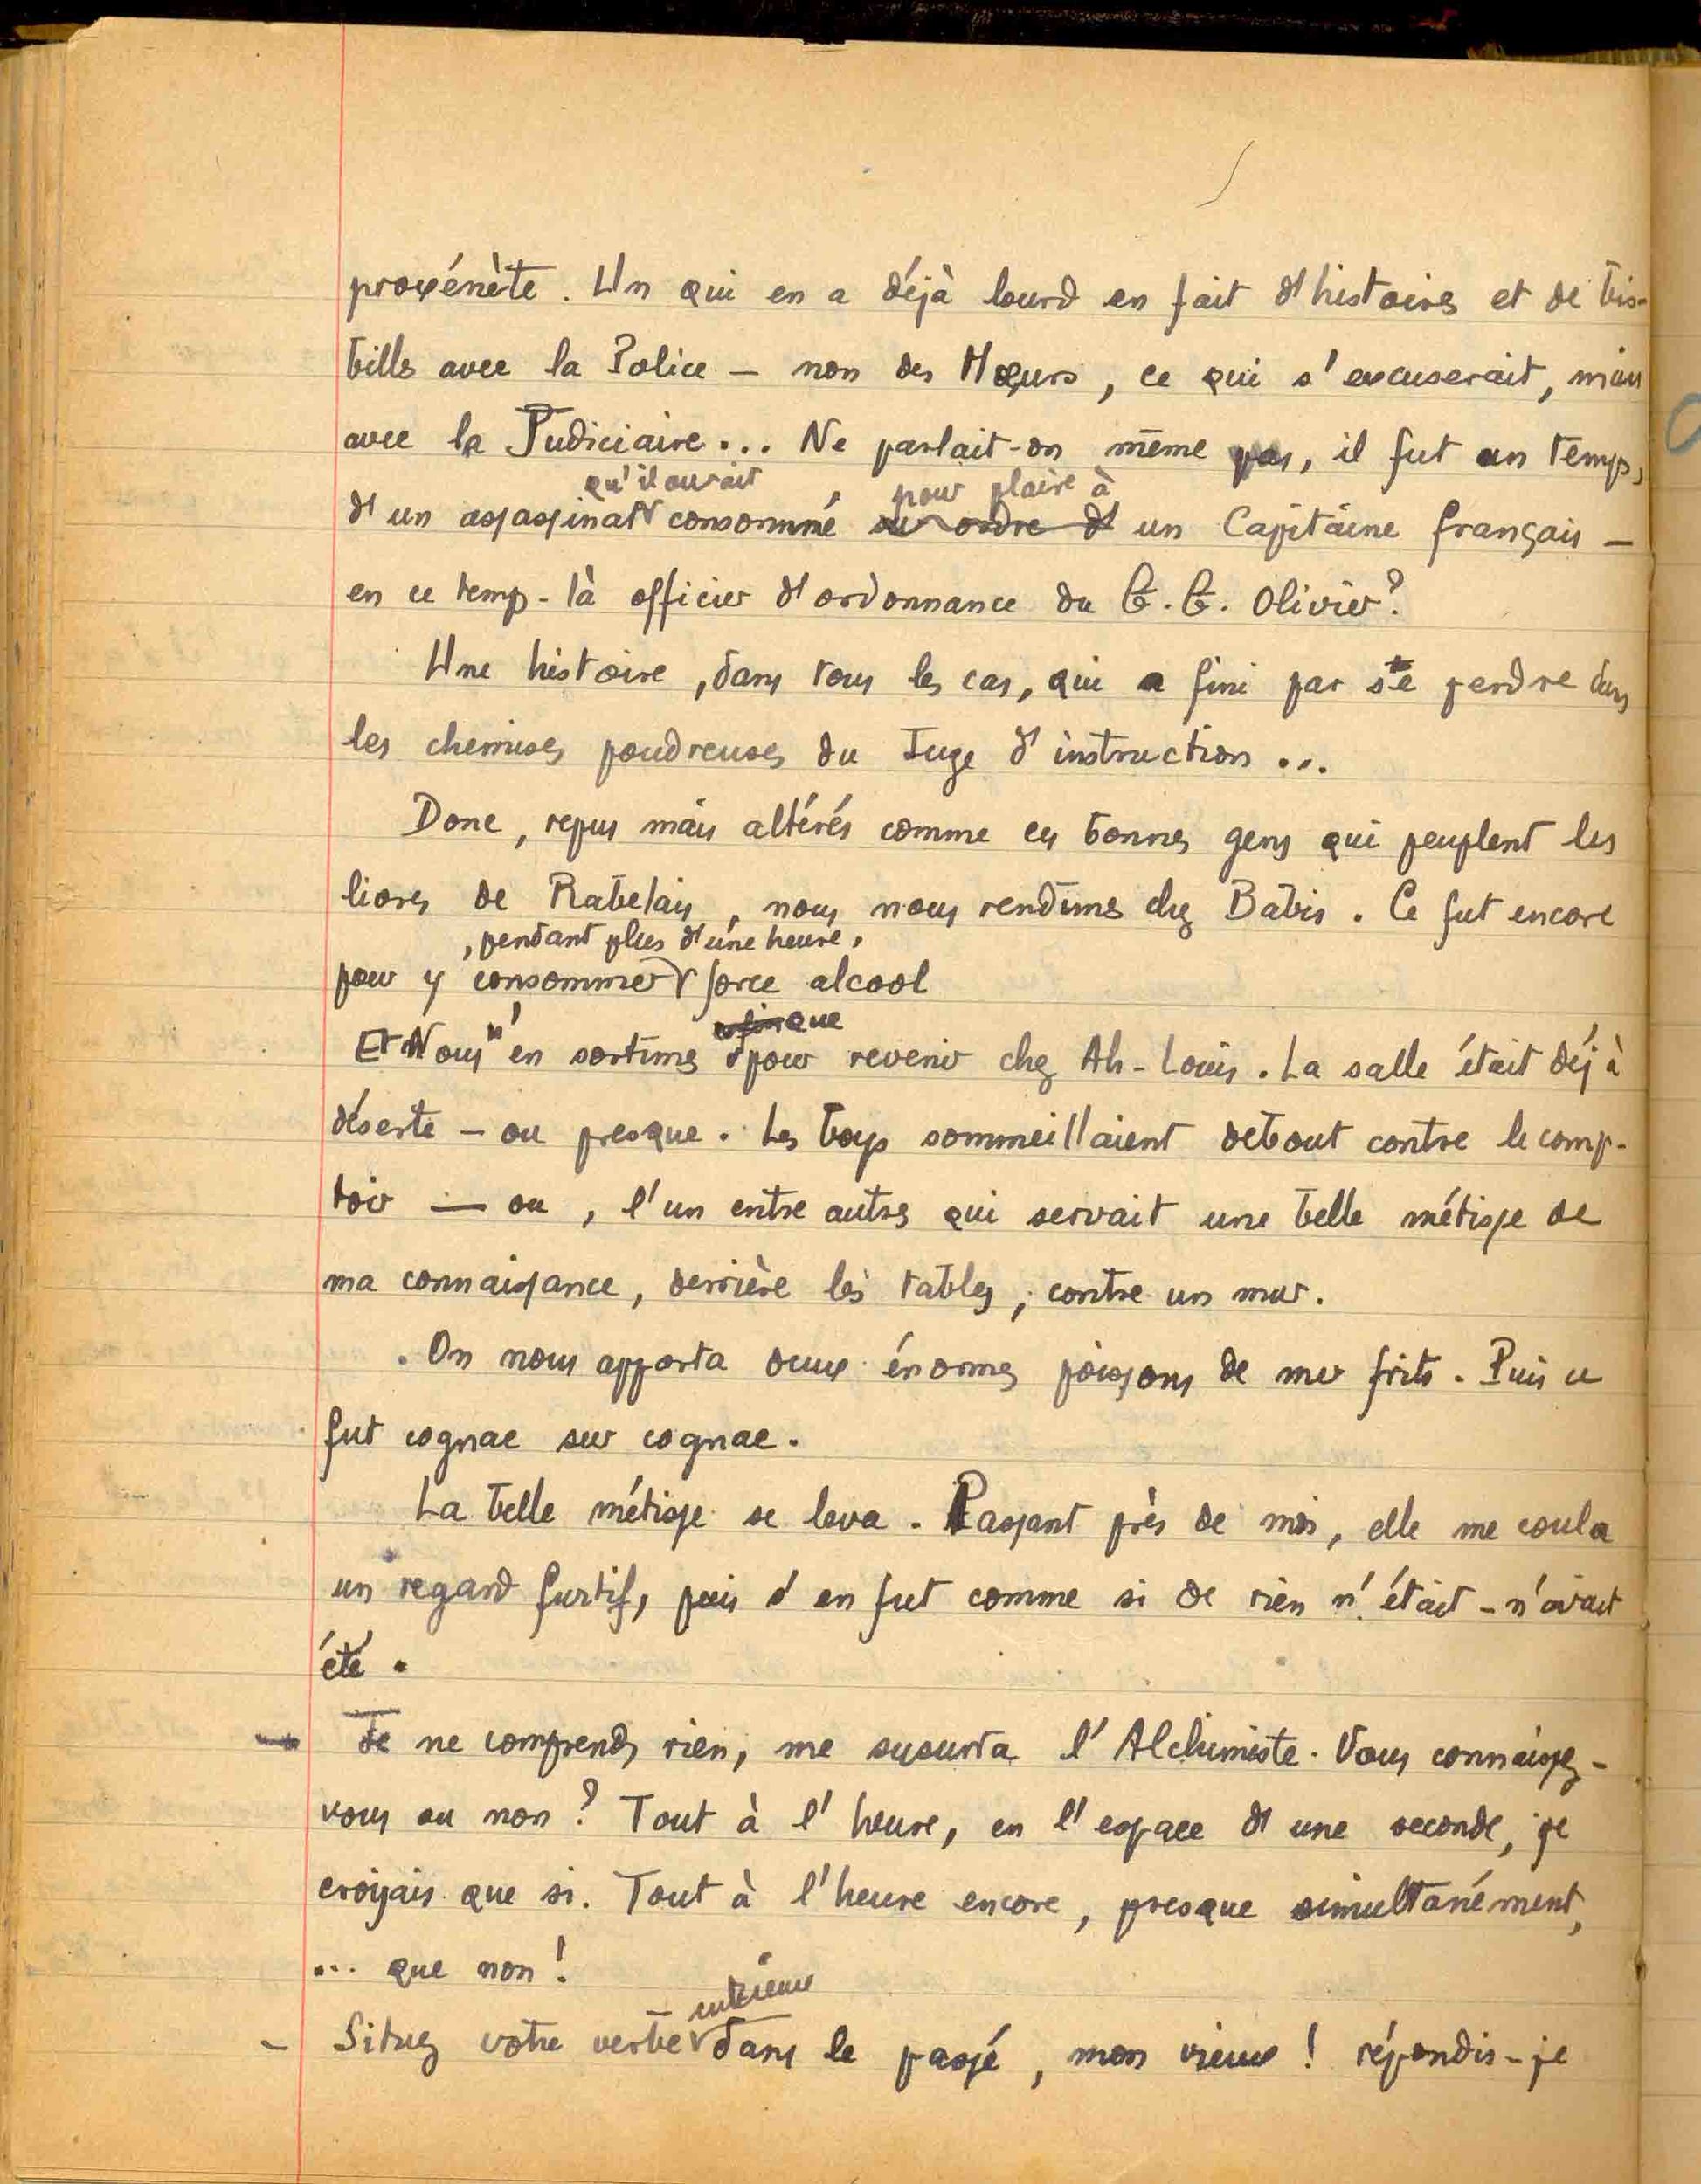 proxénète. Un qui en a déjà lourd en fait d'histoires et de bis-
billes avec la Police — non des Mœurs, ce qui s'excuserait, mais
avec la Judiciaire... Ne parlait-on même pas, il fut un temps,
qu'il aurait , pour plaire à
d'un assassinat consommé sur ordre d' un Capitaine français —
en ce temps-là officier d'ordonnance du G.G. Olivier?
Une histoire, dans tous les cas, qui a fini par se perdre dans
les chemises poudreuses du Juge d'instruction...
Donc, repus mais altérés comme ces bonnes gens qui peuplent les
livres de Rabelais, nous nous rendîmes chez Babis. Ce fut encore
, pendant plus d'une heure,
pour y consommer force alcool
que
Et Nous n'en sortîmes pour revenir chez Ah-Louis. La salle était déjà
déserte — ou presque. Les boys sommeillaient debout contre le comp-
toir — ou, l'un entre autres qui servait une belle métisse de
ma connaissance, derrière les tables, contre un mur.
On nous apporta deux énormes poissons de mer frits. Puis ce
fut cognac sur cognac.
La belle métisse se leva. Passant près de moi, elle me coula
un regard furtif, puis s'en fut comme si de rien n'était - n'avait
été.
— Je ne comprends rien, me susurra l'Alchimiste. Vous connaissez-
vous ou non? Tout à l'heure, en l'espace d'une seconde, je
croyais que si. Tout à l'heure encore, presque simultanément,
... que non!
- Situez votre verbe dans le passé, mon vieux! répondis-je